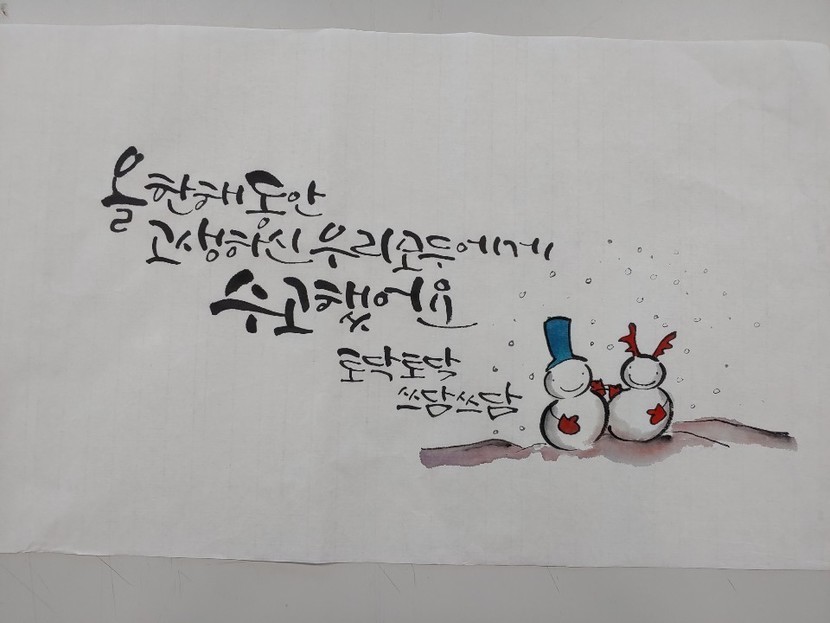 올 한해동안
고생하신 우리 모두에게
수고했어요
토닥토닥
쓰담쓰담